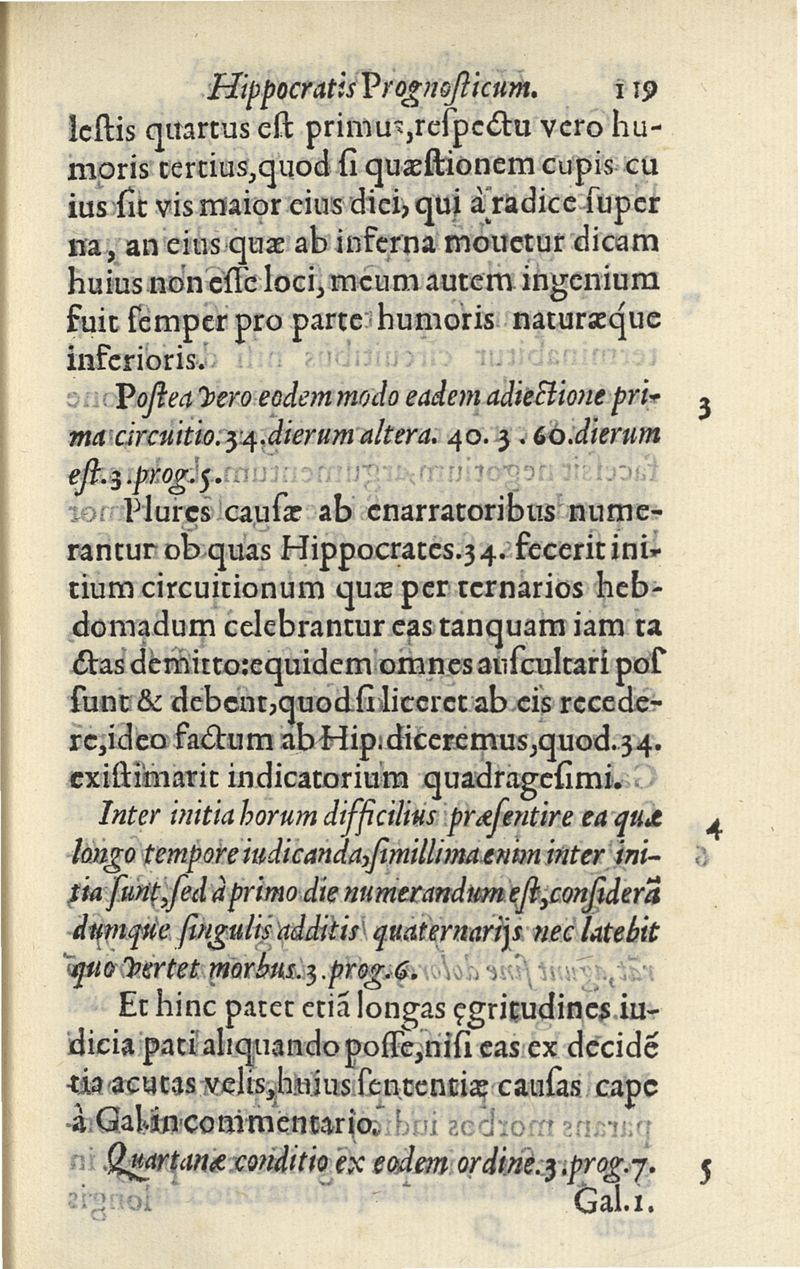 Hippocratis Prognoſticum. 119
leſtis quartus eſt primus,reſpectu vero hu-
moris tertius,quod ſi quæſtionem cupis cu
ius ſit vis maior eius diei, qui à radice ſuper
na, an eius quæ ab inferna mouetur dicam
huius non eſſe loci, meum autem ingenium
fuit ſemper pro parte humoris naturæq́ue
inferioris.
Poſtea vero eodem modo eadem adiectione pri- 3
ma circuitio.34.dierum altera. 40. 3 . 60.dierum
eſt.3.prog.5.
Plures cauſæ ab enarratoribus nume-
rantur ob quas Hippocrates.34. fecerit ini-
tium circuitionum quæ per ternarios heb-
domadum celebrantur eas tanquam iam ta
ctas demitto:equidem omnes auſcultari poſ
ſunt & debent,quod ſi liceret ab eis recede-
re,ideo factum ab Hip.diceremus,quod.34.
exiſtimarit indicatorium quadrageſimi.
Inter initia horum difficilius præſentire ea quæ 4
longo tempore iudicanda,ſimillima enim inter ini-
tia ſunt,ſed à primo die numerandum eſt,conſiderã
dumque ſingulis additis quaternarijs nec latebit
quo vertet morbus.3.prog.6.
Et hinc patet etiã longas ęgritudines iu-
dicia pati aliquando poſſe,niſi eas ex decidẽ
tia acutas velis,huius ſententię cauſas cape
à Gal.in commentario.
Quartanæ conditio ex eodem ordine.3.prog.7. 5
Gal.1.